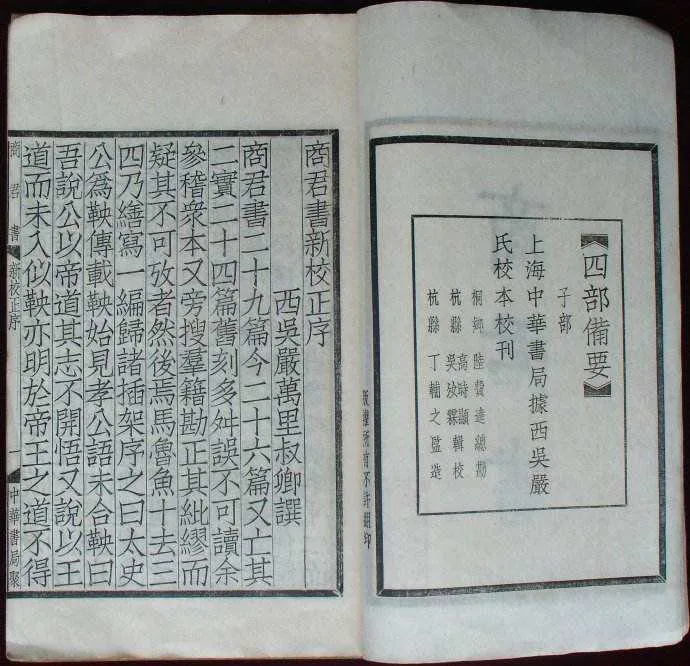 《四部備要》
子部
上海中華書局據西吳嚴
氏校本校刊
桐鄉 陸費逵總勘
杭縣 高時顯 輯校
杭縣 吳汝霖 輯校
杭縣 丁輔之監造
版權所有不許翻印
商君書新校正序
西吳嚴萬里叔卿譔
商君書二十九篇今二十六篇又亡其
二實二十四篇舊刻多舛誤不可讀余
參稽衆本又旁搜羣籍勘正其紕繆而
疑其不可攷者然後焉馬魯魚十去三
四乃繕寫一編歸諸插架序之曰太史
公爲鞅傳載鞅始見孝公語未合鞅曰
吾說公以帝道其志不開悟又說以王
道而未入似鞅亦明於帝王之道不得
商君書 新校正序 一 中華書局聚